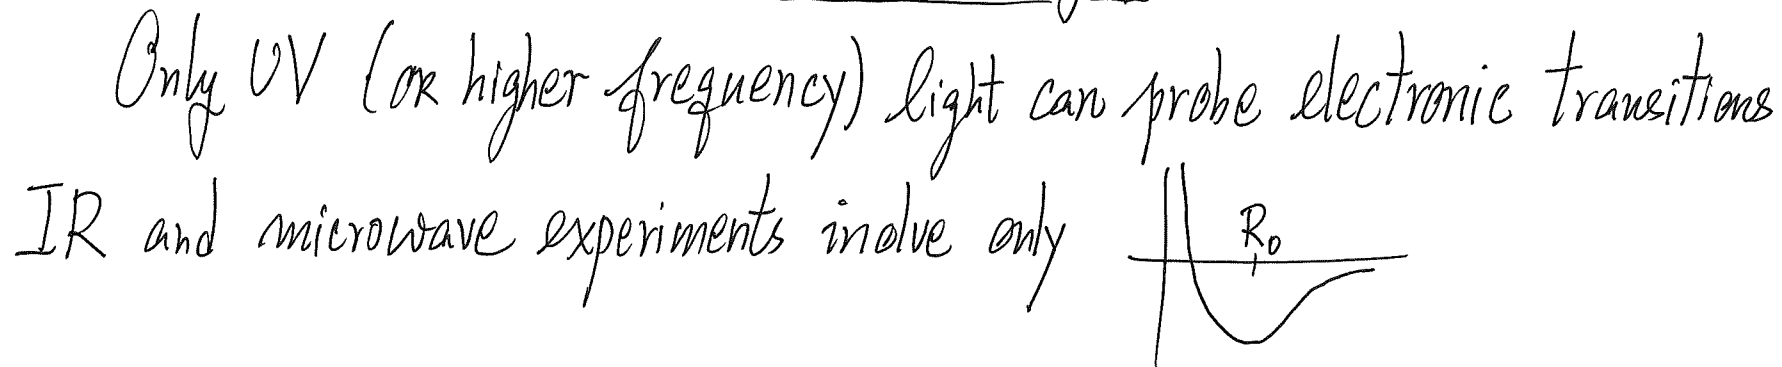 Only UV (or higher frequency) light can probe electronic transitions
IR and microwave experiments inolve only
R₀